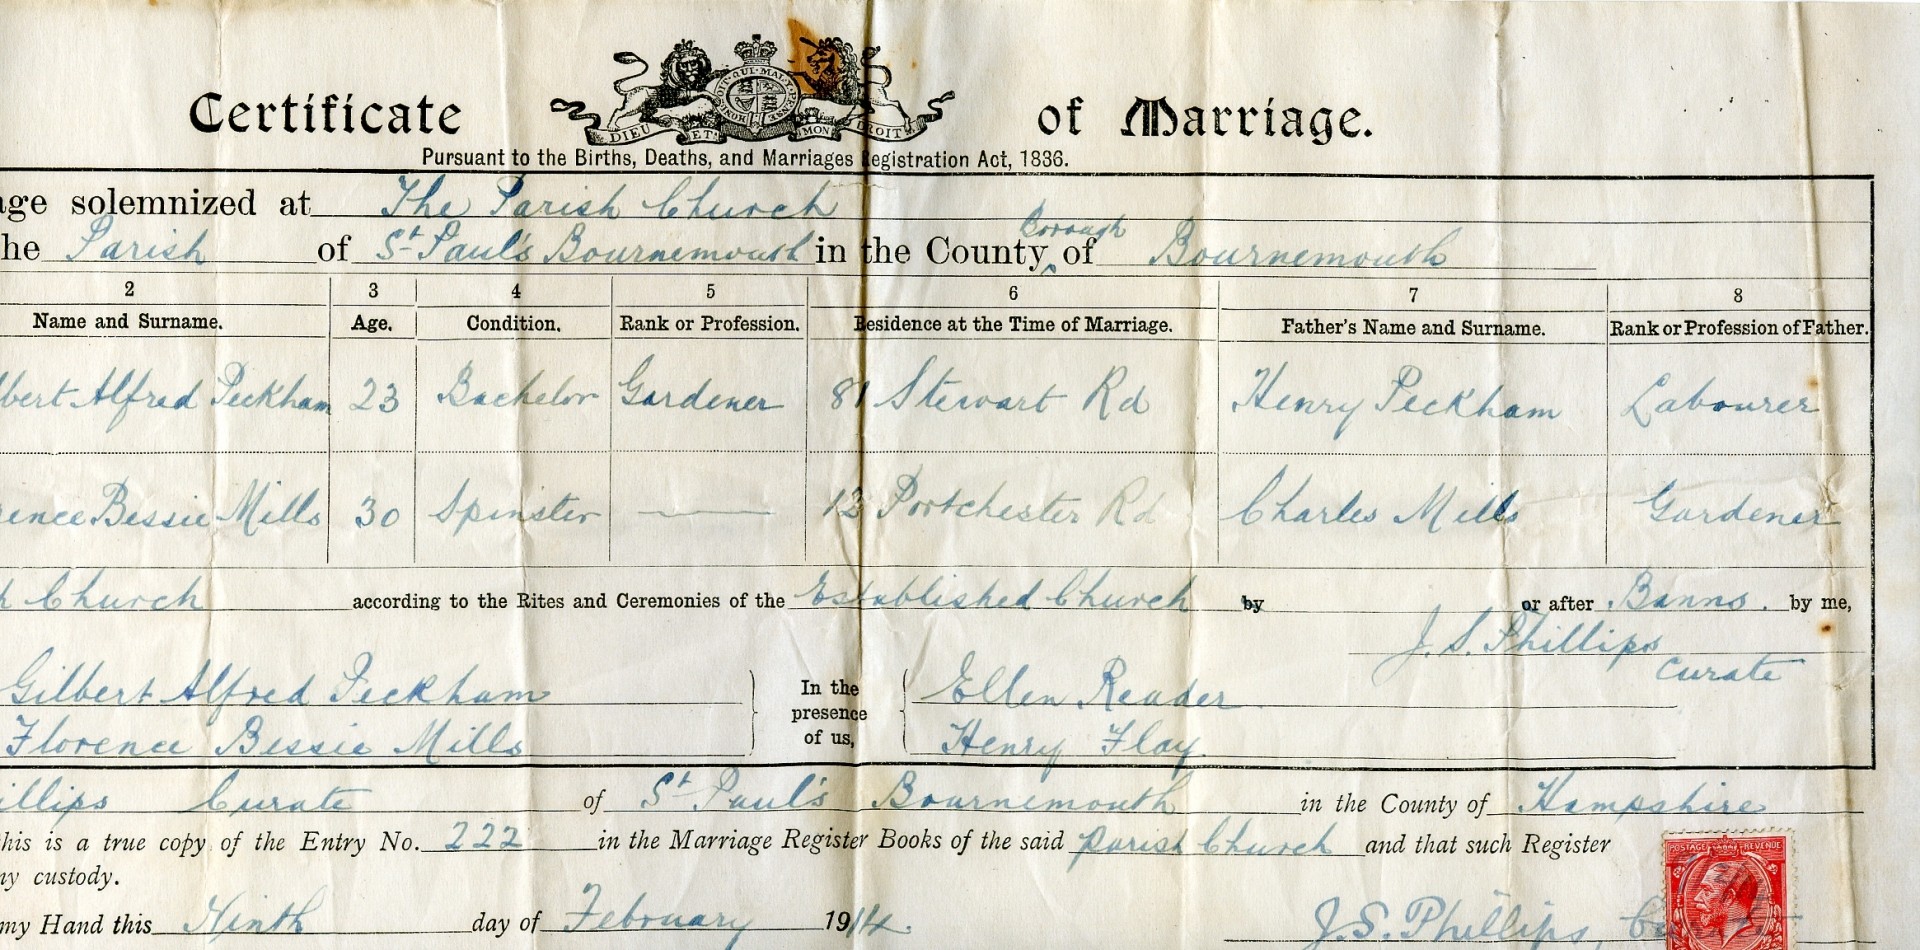 Certificate of Marriage.
HONI·SOIT·QUI·MAL·Y·PENSE
DIEU ET MON DROIT
Pursuant to the Births, Deaths, and Marriages Registration Act, 1836.
age solemnized at The Parish Church
he Parish of St Paul's Bournemouth in the County Borough of Bournemouth
2 3 4 5 6 7 8
Name and Surname. Age. Condition. Rank or Profession. Residence at the Time of Marriage. Father's Name and Surname. Rank or Profession of Father.
lbert Alfred Peckham 23 Bachelor Gardener 81 Stewart Rd Henry Peckham Labourer
rence Bessie Mills 30 Spinster — 12 Portchester Rd Charles Mills Gardener
h Church according to the Rites and Ceremonies of the Established Church by or after Banns. by me,
J. S. Phillips
Curate
Gilbert Alfred Peckham In the presence of us, Ellen Reader
Florence Bessie Mills Henry Flay.
illips Curate of St Paul's Bournemouth in the County of Hampshire
his is a true copy of the Entry No. 222 in the Marriage Register Books of the said parish Church and that such Register
ny custody.
POSTAGE REVENUE
my Hand this Ninth day of February 1914. J. S. Phillips,